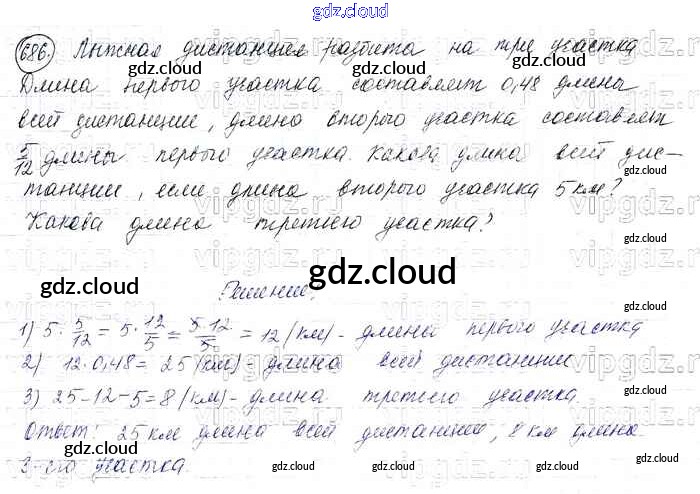 gdz.cloud
686. Лыжная дистанция разбита на три участка
gdz.cloud gdz.cloud gdz.cloud
Длина первого участка составляет 0,48 длины
всей дистанции, длина второго участка составляет
5/12 длины первого участка. Какова длина всей дис-
gdz.cloud gdz.cloud gdz.cloud
танции, если длина второго участка 5 км?
Какова длина третьего участка?
gdz.cloud
gdz.cloud gdz.cloud gdz.cloud
Решение.
1) 5 · 5/12 = 5 · 12/5 = 5·12/5 = 12 (км) - длина первого участка
2) 12 · 0,48 = 25 (км) - длина всей дистанции
gdz.cloud gdz.cloud gdz.cloud
3) 25-12-5=8 (км) - длина третьего участка.
Ответ: 25 км длина всей дистанции, 8 км длина
3-его участка.
gdz.cloud gdz.cloud gdz.cloud